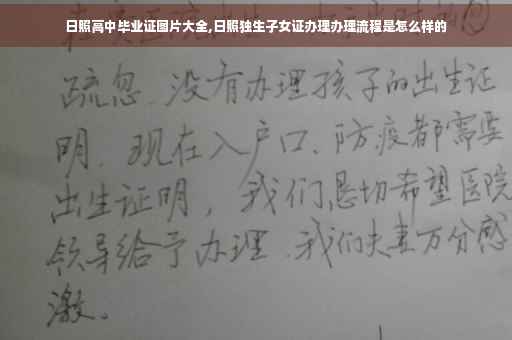 日照高中毕业证图片大全,日照独生子女证办理办理流程是怎么样的
疏忽、没有办理孩子的出生证
明、现在入户口、防疫都需要
出生证明，我们恳切希望医院
领导给予办理、我们夫妻万分感
激。